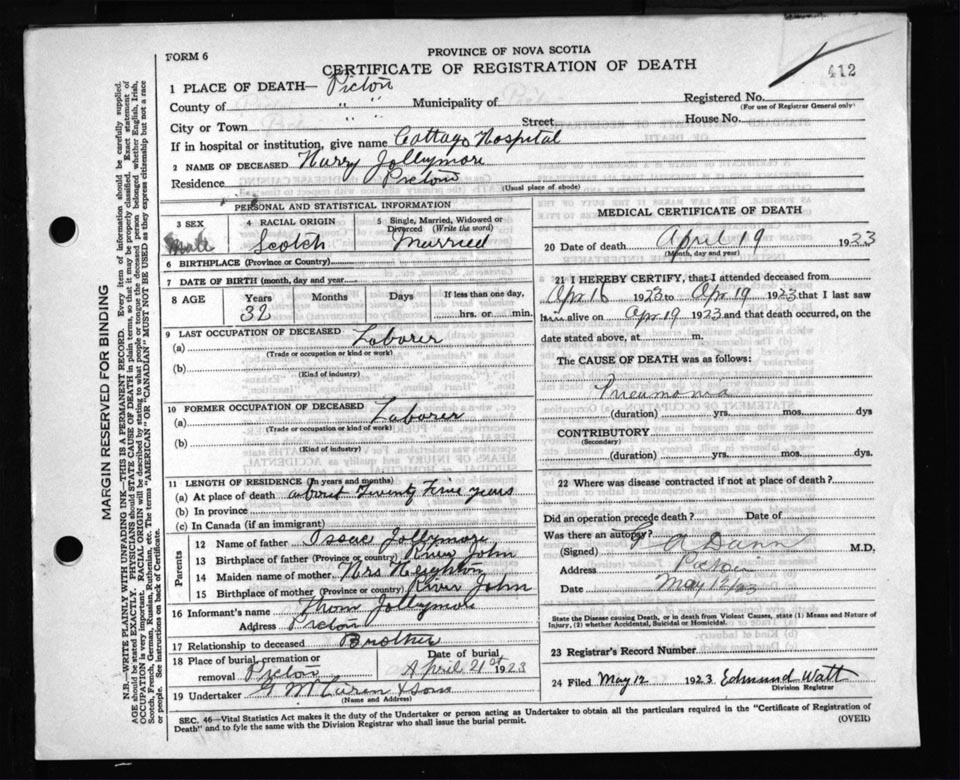 FORM 6
PROVINCE OF NOVA SCOTIA
CERTIFICATE OF REGISTRATION OF DEATH
412
1 PLACE OF DEATH— Pictou
County of " " Municipality of Registered No.
(For use of Registrar General only)
City or Town " " Street House No.
If in hospital or institution, give name Cottage Hospital
2 NAME OF DECEASED Harry Jollymore
Residence Pictou
(Usual place of abode)
PERSONAL AND STATISTICAL INFORMATION
3 SEX Male
4 RACIAL ORIGIN Scotch
5 Single, Married, Widowed or Divorced (Write the word) Married
6 BIRTHPLACE (Province or Country)
7 DATE OF BIRTH (month, day and year)
8 AGE Years 32 Months Days If less than one day, hrs. or min.
9 LAST OCCUPATION OF DECEASED
(a) Laborer
(Trade or occupation or kind or work)
(b)
(Kind of industry)
10 FORMER OCCUPATION OF DECEASED
(a) Laborer
(Trade or occupation or kind or work)
(b)
(Kind of industry)
11 LENGTH OF RESIDENCE (In years and months)
(a) At place of death about Twenty Five years
(b) In province
(c) In Canada (if an immigrant)
Parents
12 Name of father Isaac Jollymore
13 Birthplace of father (Province or country) River John
14 Maiden name of mother Mrs Heighton
15 Birthplace of mother (Province or country) River John
16 Informant's name Thom Jollymore
Address Pictou
17 Relationship to deceased Brother
18 Place of burial, cremation or removal Pictou
Date of burial April 21st 1923
19 Undertaker & Sons
(Name and Address)
MEDICAL CERTIFICATE OF DEATH
20 Date of death April 19 1923
(Month, day and year)
21 I HEREBY CERTIFY, that I attended deceased from
Apr 16 1923 to Apr 19 1923 that I last saw
alive on Apr 19 1923 and that death occurred, on the
date stated above, at m.
The CAUSE OF DEATH was as follows:
Pneumonia
(duration) yrs. mos. dys
CONTRIBUTORY
(Secondary)
(duration) yrs. mos. dys.
22 Where was disease contracted if not at place of death?
Did an operation precede death? Date of
Was there an autopsy?
(Signed) Dunn M.D.
Address Pictou
Date May 12/23
State the Disease causing Death, or in death from Violent Causes, state (1) Means and Nature of
Injury, (2) whether Accidental, Suicidal or Homicidal.
23 Registrar's Record Number
24 Filed May 12 1923 Edmund Watt
Division Registrar
SEC. 46—Vital Statistics Act makes it the duty of the Undertaker or person acting as Undertaker to obtain all the particulars required in the "Certificate of Registration of
Death" and to fyle the same with the Division Registrar who shall issue the burial permit.
(OVER)
MARGIN RESERVED FOR BINDING
N.B.—WRITE PLAINLY WITH UNFADING INK—THIS IS A PERMANENT RECORD. Every item of information should be carefully supplied.
AGE should be stated EXACTLY. PHYSICIANS should STATE CAUSE OF DEATH in plain terms, so that it may be properly classified. Exact statement of
OCCUPATION is very important. RACIAL ORIGIN will be described by stating to what people or tongue the deceased person belonged whether English, Irish,
Scotch, French, German, Russian, Ruthenian, etc. The terms "AMERICAN" OR "CANADIAN" MUST NOT BE USED as they express citizenship but not a race
or people. See instructions on back of Certificate.